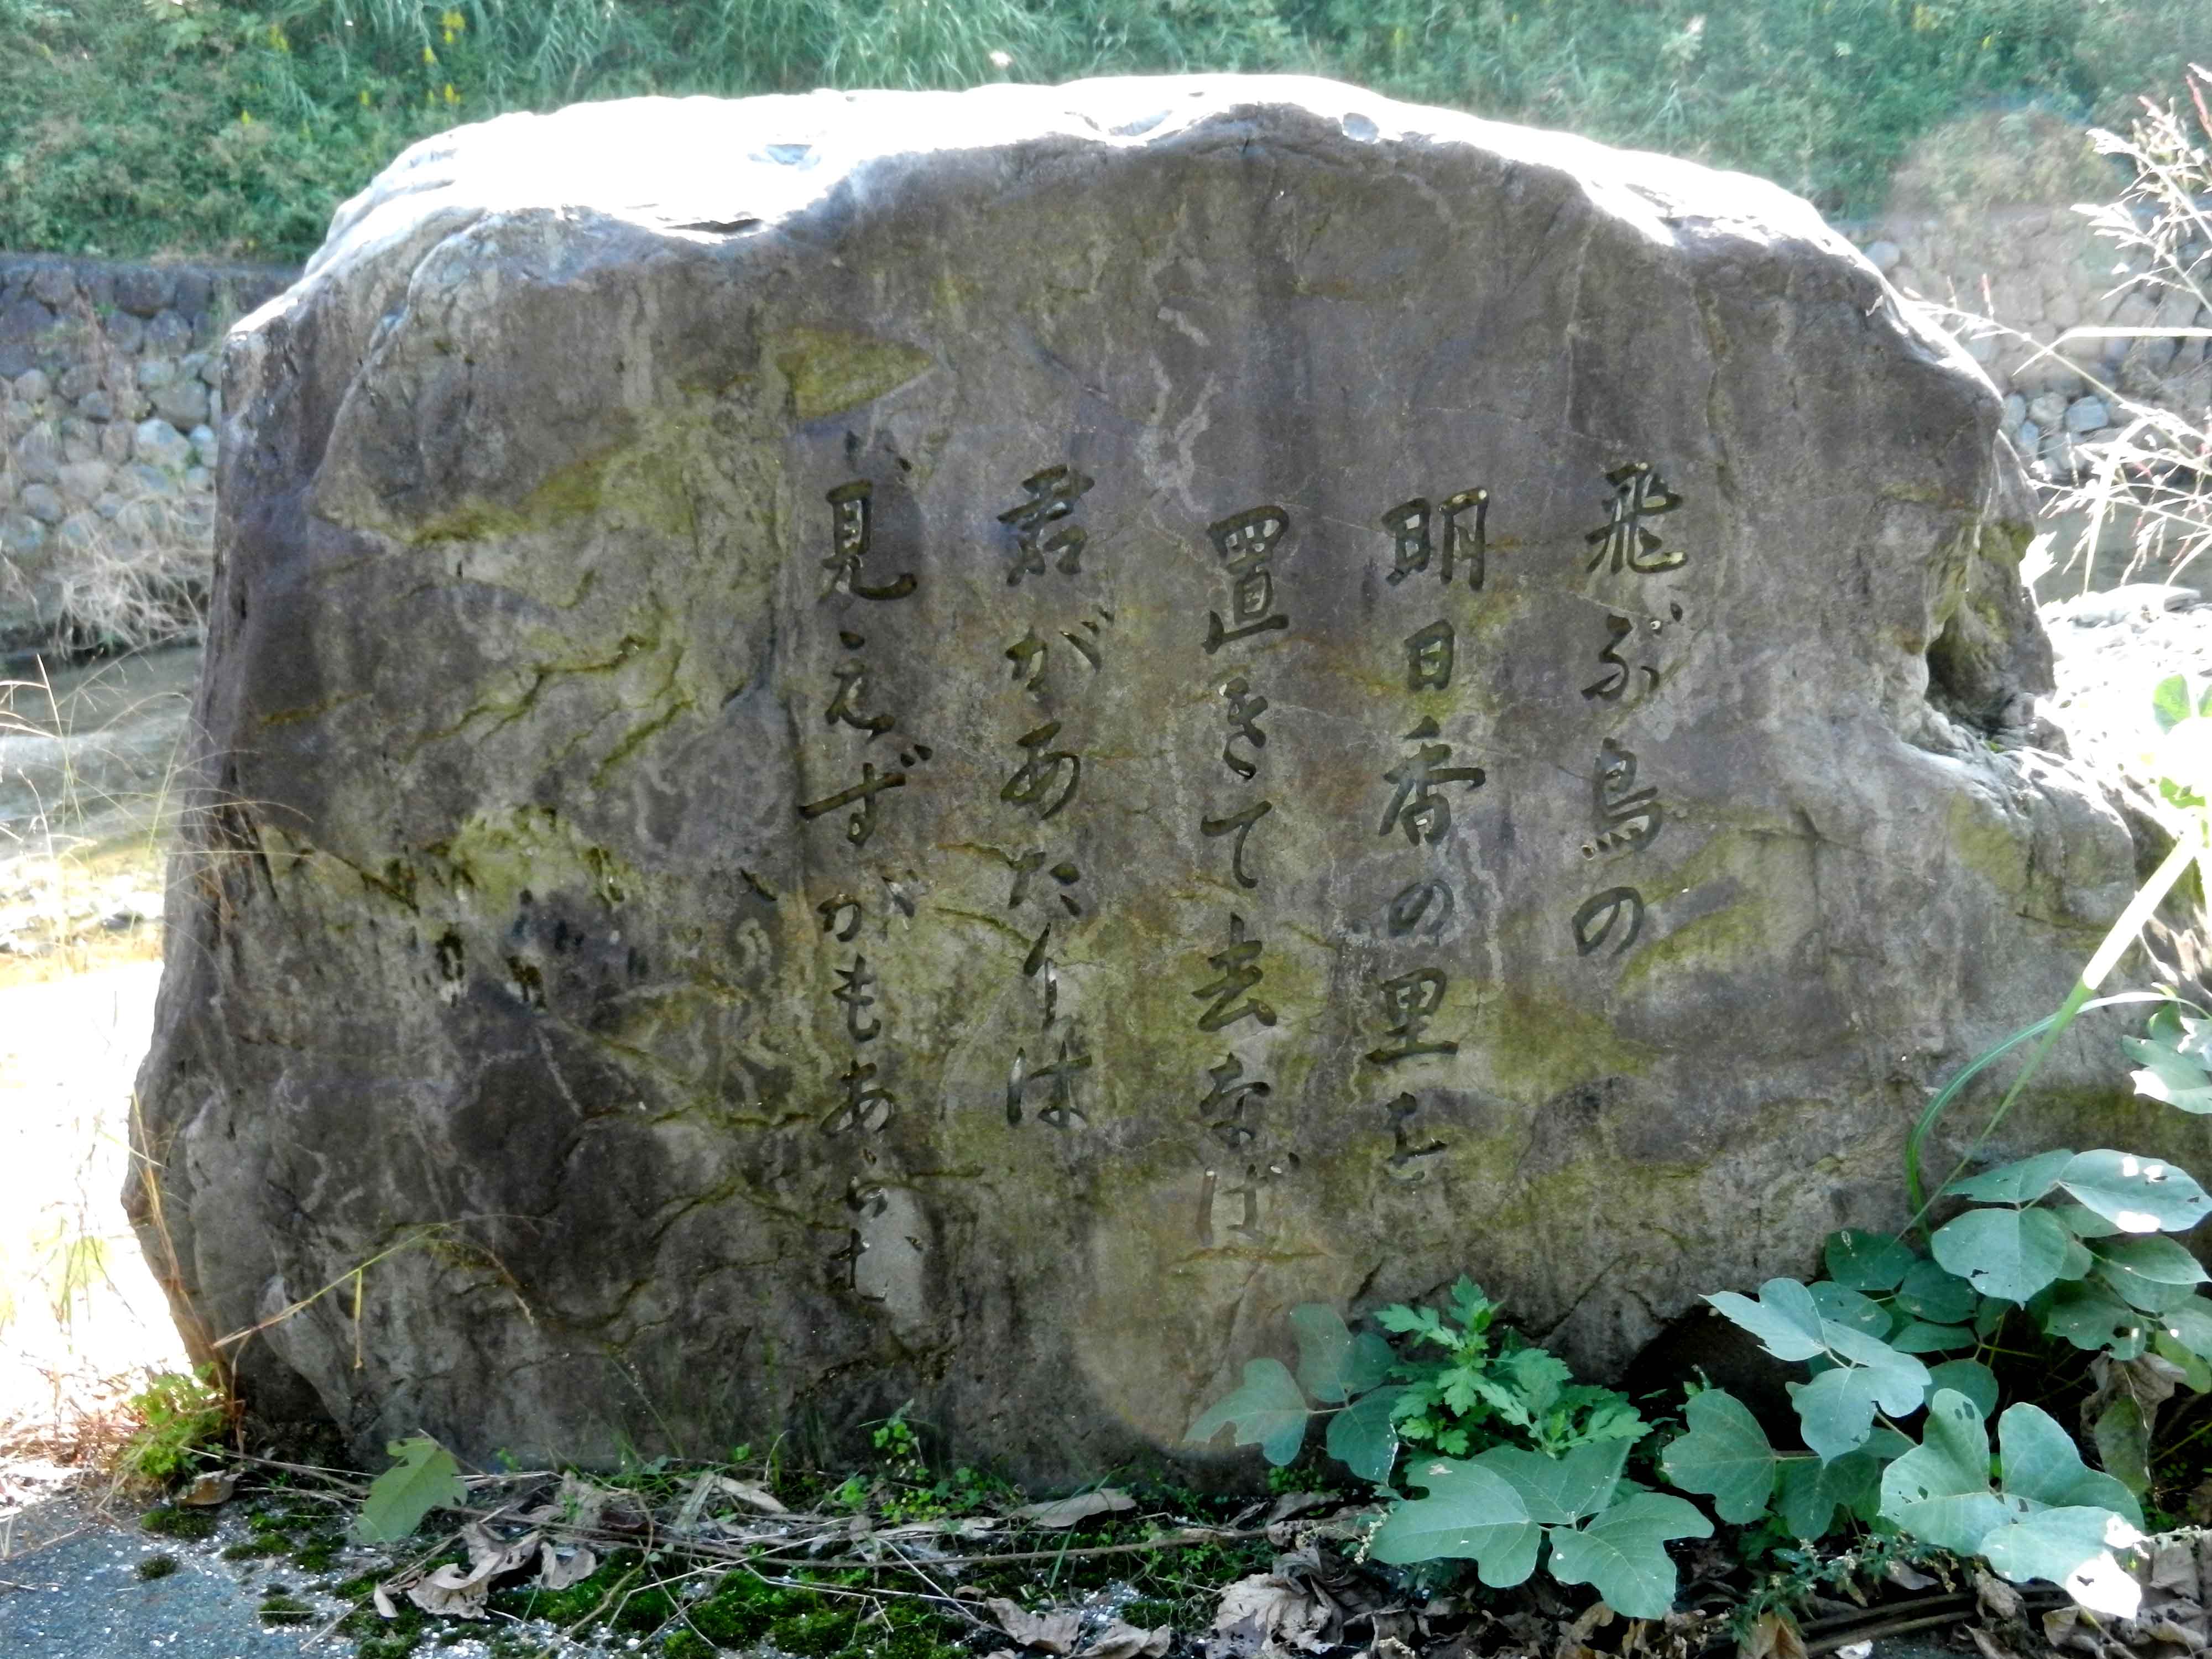 飛ぶ鳥の
明日香の里を
置きて去なば
君があたりは
見えずがもあらむ